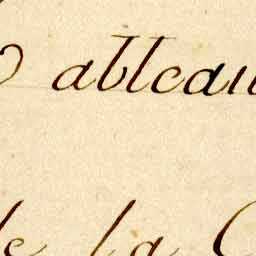 ableau
de la